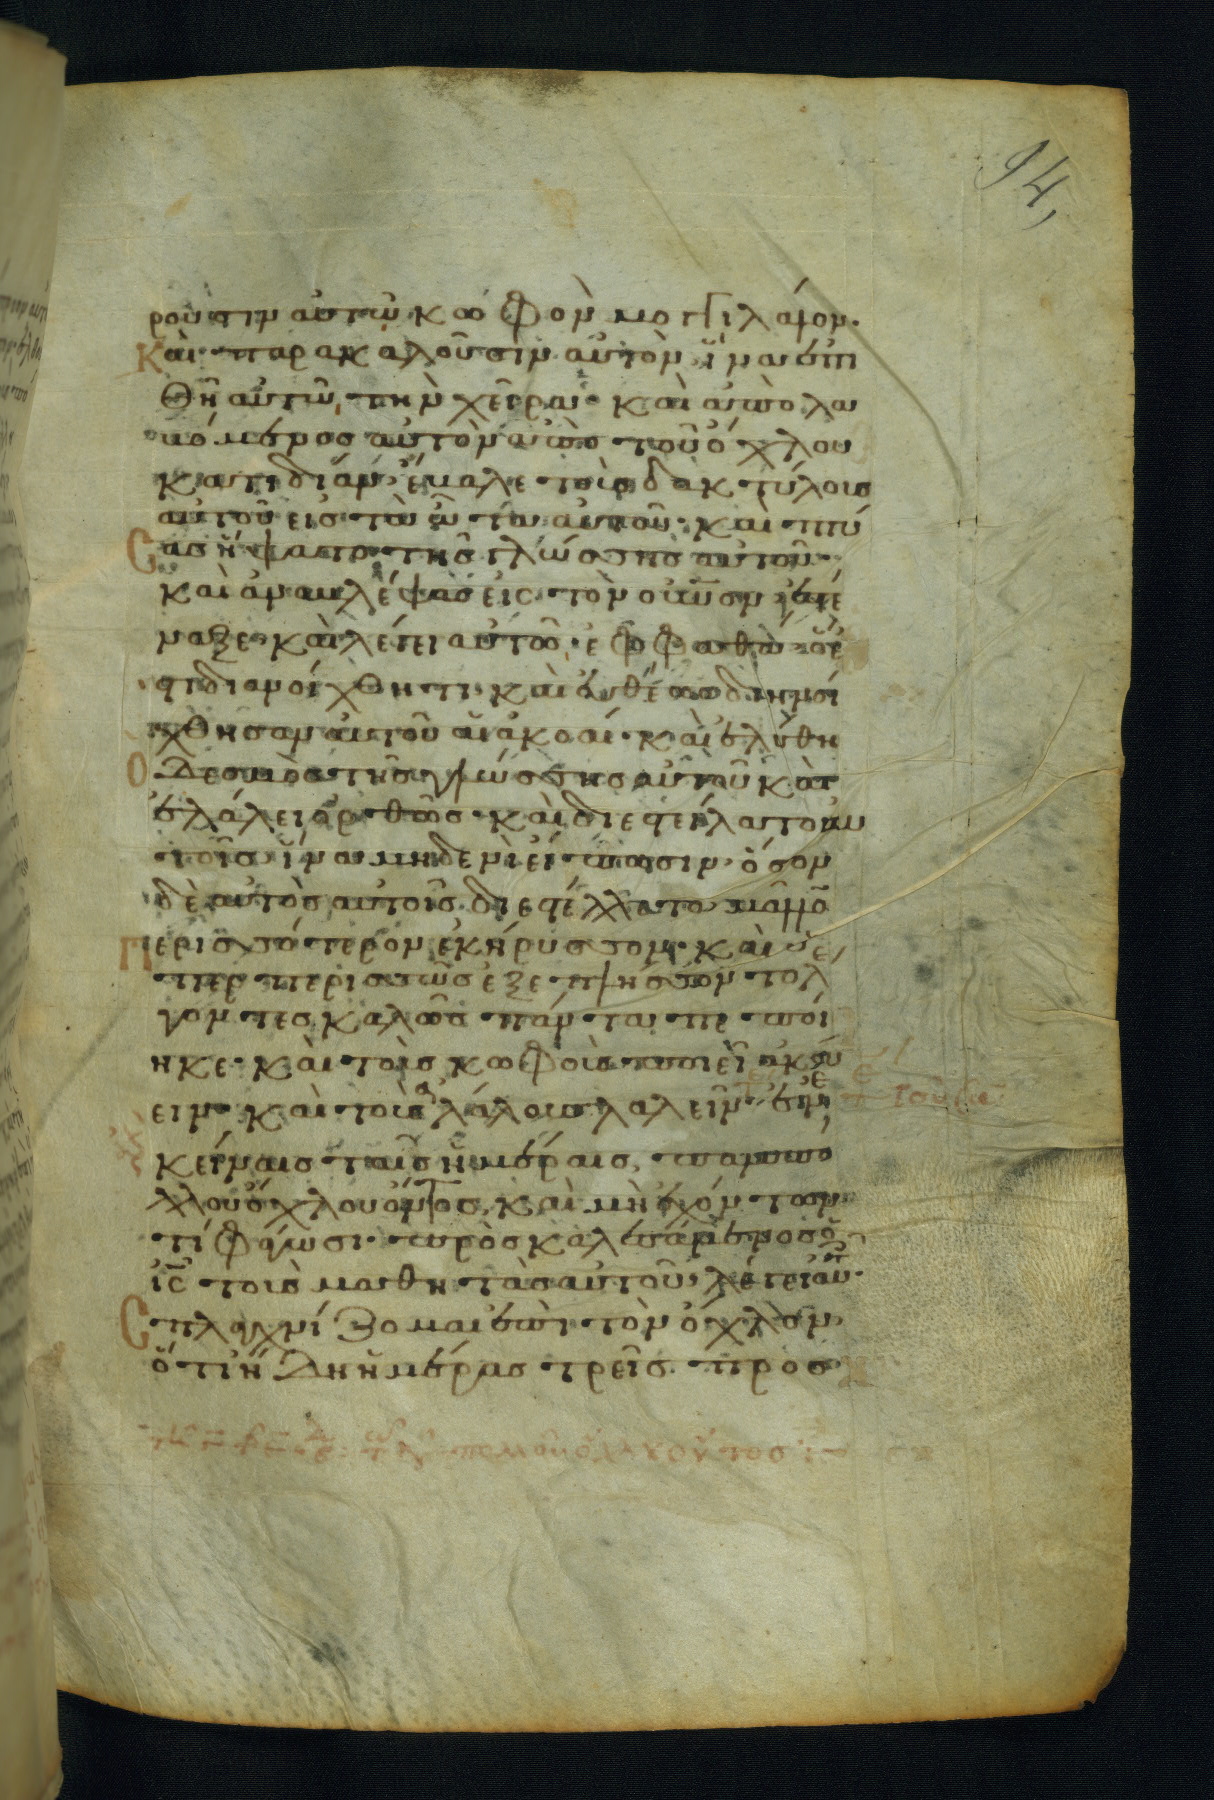 94,
ρουσιν αυτω κωφὸν μογγιλάλον·
Καὶ παρακαλοῦσιν αὐτὸν ἵνα ἐπι
θῆ αὐτῶ, τὴν χεῖρα· καὶ ἀπολα
βόμενος αὐτὸν ἀπὸ τοῦ ὄχλου
κατιδίαν, ἔβαλε τοὺς δακτύλους
αὐτοῦ εἰς τὰ ὦτα αὐτοῦ· καὶ πτύ
Σας ἥψατο τῆς γλώσσης αὐτοῦ·
καὶ ἀναβλέψας εἰς τὸν οὐνὸν ἐστέ
ναξε· καὶ λέγει αὐτῶ, ἐφφαθὰ ὅ ἐ
στι διανοίχθητι· καὶ εὐθέως διηνοί
χθησαν αὐτοῦ αἱ ἀκοαί· καὶ ἐλύθη
Ὁ Δεσμὸς τῆς γλώσσης αὐτοῦ καὶ
ἐλάλει ὀρθῶς· καὶ διεστείλατο αὐ
τοῖς ἵνα μηδενὶ εἴπωσιν· ὅσον
δὲ αὐτὸς αὐτοῖς διεστέλλετο μᾶλλο
Περισσότερον ἐκήρυσσον· καὶ ὑ
περπερισσῶς ἐξεπλήσσοντο λέ
γοντες, καλῶς πάντα πεποί
ηκε· καὶ τοὺς κωφοὺς ποιεῖ ἀκού
ειν· καὶ τοὺς ἀλάλους λαλεῖν· ἐν ἐ
κείναις ταῖς ἡμέραις, παμπο
λλου ὄχλου ὄντος, καὶ μὴ ἐχόντων
τί φάγωσι· προσκαλεσάμενος ὁ
ις τοὺς μαθητὰς αὐτοῦ λέγει αὐτ·
Σπλαγχνίζομαι ἐπὶ τὸν ὄχλον,
ὅτι ἤΔη ἡμέρας τρεῖς προσ